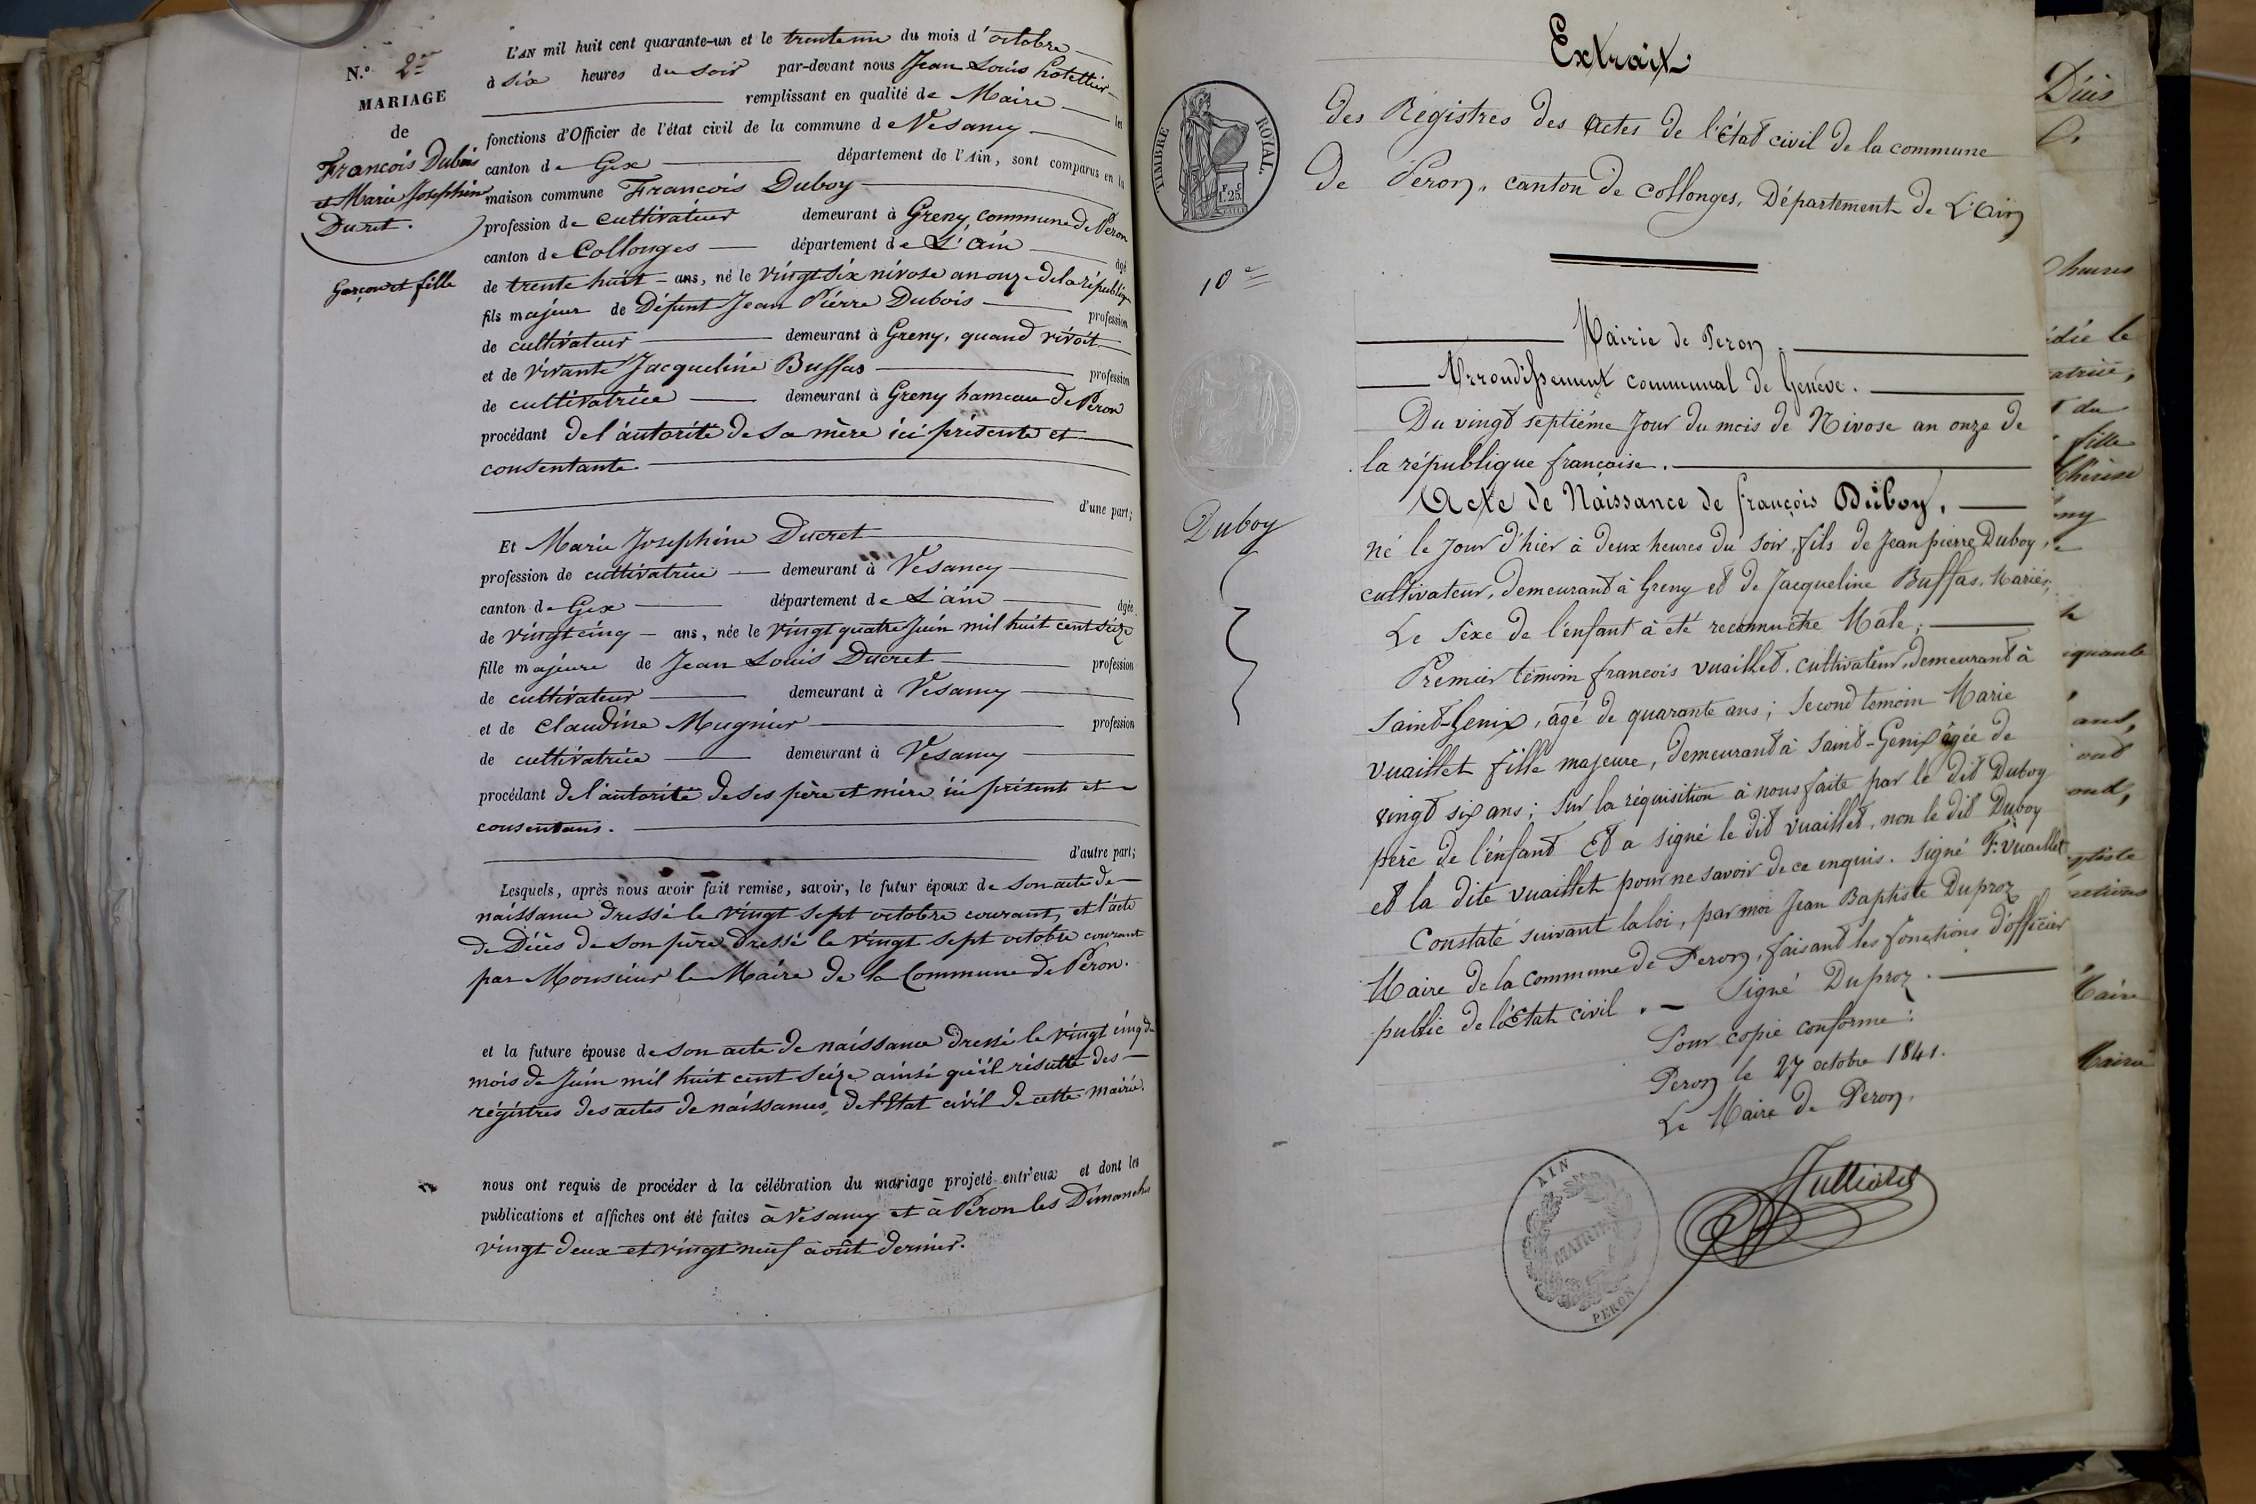 N.º 2e
MARIAGE
de
François Dubois
et Marie Josephine
Ducret.
Garçon et fille
L'AN mil huit cent quarante-un et le trente un du mois d'octobre
à six heures du soir par-devant nous Jean Louis hotellier
remplissant en qualité de Maire les
fonctions d'Officier de l'état civil de la commune de Vesancy
canton de Gex département de l'Ain, sont comparus en la
maison commune François Duboy
profession de cultivateur demeurant à Greny commune de Péron
canton de Collonges département de L'ain âgé
de trente huit ans, né le vingt six nivose an onze de la républiq
fils majeur de Défunt Jean Pierre Dubois profession
de cultivateur demeurant à Greny, quand vivoit
et de vivante Jacqueline Buffas profession
de cultivatrice demeurant à Greny hameau de Péron
procédant de l'autorité de sa mère ici présente et
consentante.
d'une part;
Et Marie Josephine Ducret
profession de cultivatrice demeurant à Vesancy
canton de Gex département de L'ain âgée
de vingt cinq ans, née le vingt quatre Juin mil huit cent seize
fille majeure de Jean Louis Ducret profession
de cultivateur demeurant à Vesancy
et de Claudine Mugnier profession
de cultivatrice demeurant à Vesancy
procédant de l'autorité de ses père et mère ici présents et
consentans.
d'autre part;
Lesquels, après nous avoir fait remise, savoir, le futur époux de son acte de
naissance dressé le vingt sept octobre courant, et l'acte
de Décès de son père dressé le vingt sept octobre courant
par Monsieur le Maire de la Commune de Péron.
et la future épouse de son acte de naissance dressé le vingt cinq du
mois de Juin mil huit cent seize ainsi qu'il résulte des
régistres des actes de naissances, de l'Etat civil de cette mairie.
nous ont requis de procéder à la célébration du mariage projeté entr'eux et dont les
publications et affiches ont été faites à Vesancy et à Péron les Dimanches
vingt deux et vingt neuf août dernier.
TIMBRE ROYAL.
F. C.
1. 25.
10e
Duboy
Extrait
des Régistres des actes de l'état civil de la commune
de Peron, canton de Collonges, Département de L'Ain
Mairie de Peron.
Arrondissement communal de Genève.
Du vingt septième Jour du mois de Nivose an onze de
la république françoise.
Acte de Naissance de françois Duboy.
né le Jour d'hier à deux heures du soir, fils de Jean pierre Duboy,
cultivateur, demeurant à Greny et de Jacqueline Buffas, Mariés;
Le sèxe de l'enfant à été reconnu être Male;
Premier témoin francois vuaillet, cultivateur, demeurant à
Saint-Genix, âgé de quarante ans; second temoin Marie
vuaillet fille majeure, demeurant à saint-Genix âgée de
vingt six ans; sur la réquisition à nous faite par le dit Duboy
père de l'enfant Et a signé le dit vuaillet, non le dit Duboy
et la dite vuaillet pour ne savoir de ce enquis. signé F. vuaillet
Constaté suivant la loi, par moi Jean Baptiste Duproz
Maire de la commune de Peron, faisant les fonctions d'officier
public de l'Etat civil. - Signé Duproz.
Pour copie conforme:
Peron le 27 octobre 1841.
Le Maire de Peron.
Julliard
AIN
MAIRIE
PERON
Décès
heures
du
fille
quante
ans,
Maire
Mairie